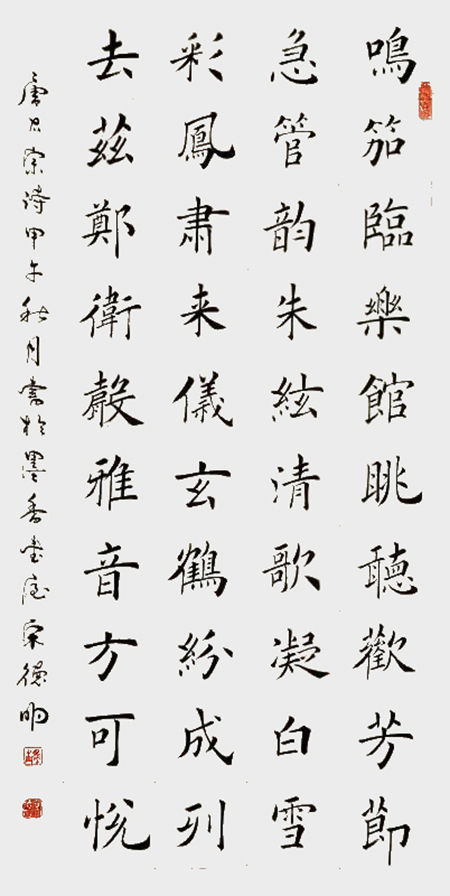 鳴笳臨樂館眺聽歡芳節
急管韵朱絃清歌凝白雪
彩鳳肅来儀玄鶴紛成列
去茲鄭衛殸雅音方可悅
唐太宗詩甲午秋月書於墨香宋德明